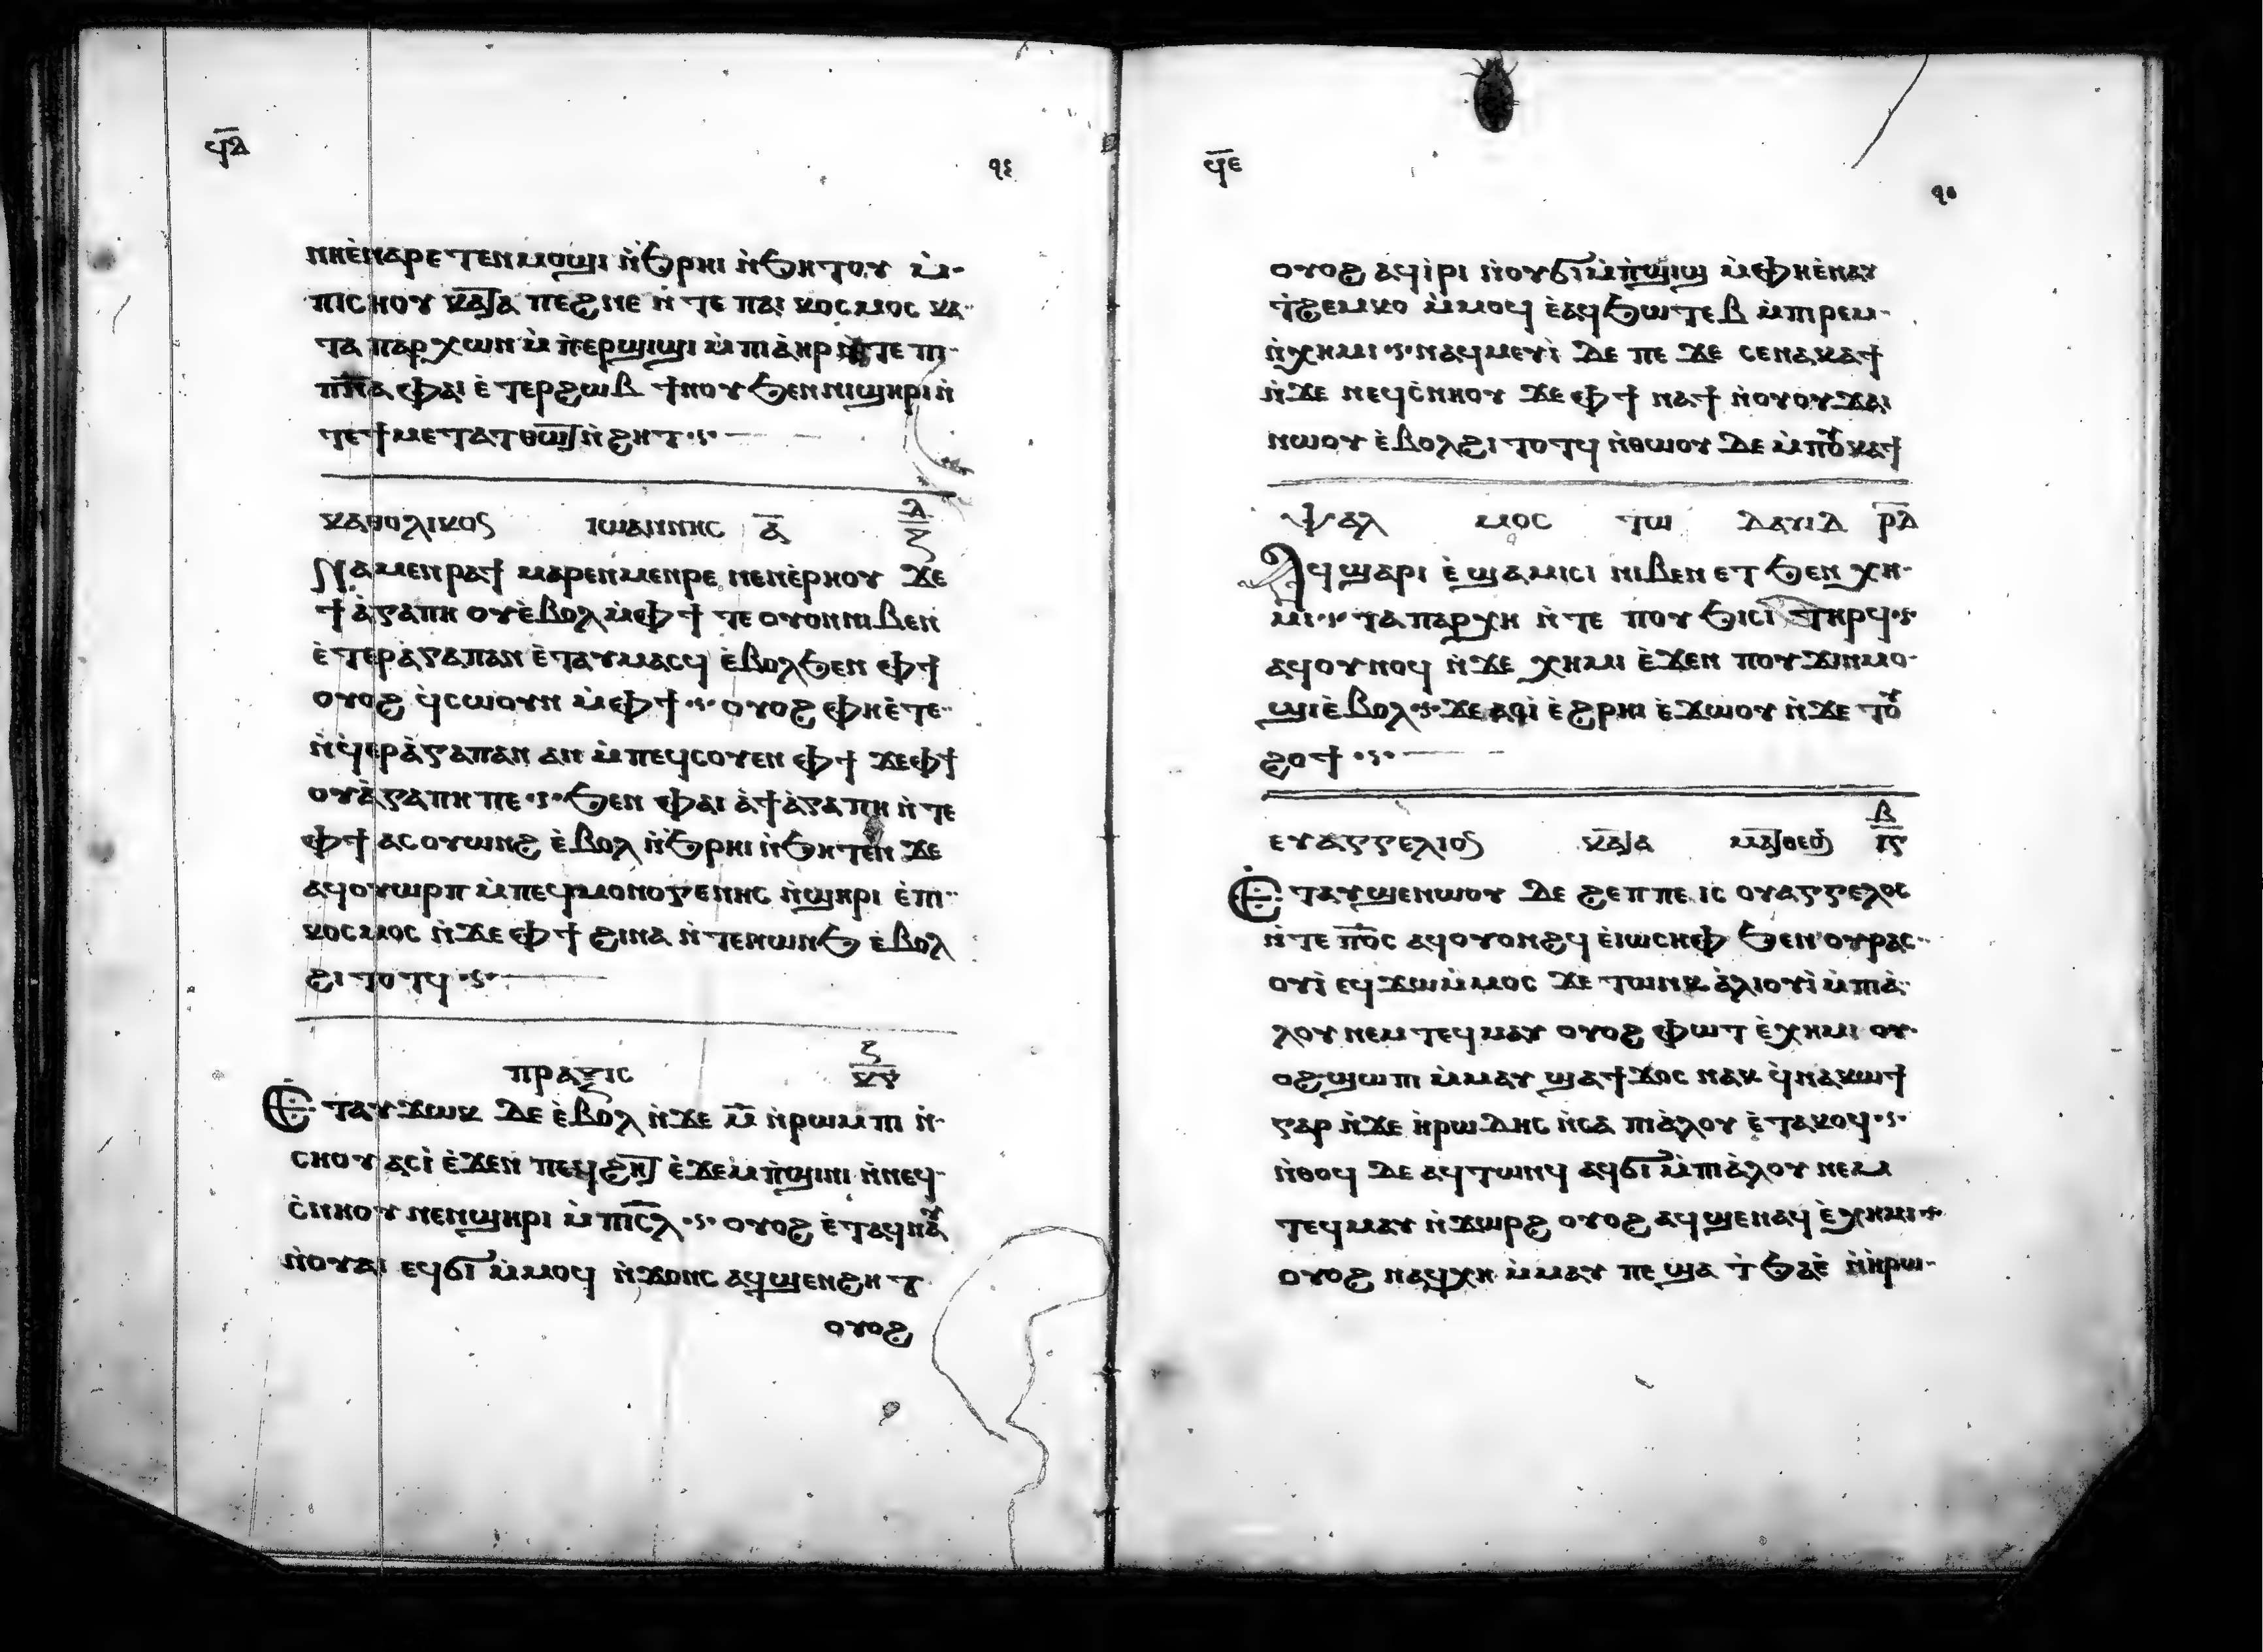 ϥ̅ⲇ̅
٩٤
ⲛⲏⲉ̀ⲛⲁⲣⲉⲧⲉⲛⲙⲟϣⲓ ⲛ̀ϧⲣⲏⲓ ⲛ̀ϧⲏⲧⲟⲩ ⲙ̀-
ⲡⲓⲥⲛⲟⲩ ⲕⲁⲧⲁ ⲡⲉϩⲛⲉ ⲛ̀ⲧⲉ ⲡⲁⲓ ⲕⲟⲥⲙⲟⲥ ⲕⲁ-
ⲧⲁ ⲡⲁⲣⲭⲱⲛ ⲙ̀ⲡ̀ⲉⲣϣⲓϣⲓ ⲙ̀ⲡⲓⲁ̀ⲏⲣ ⲛ̀ⲧⲉ ⲡⲓ-
ⲡ̅ⲛ̅ⲁ ⲫⲁⲓ ⲉ̀ⲧⲉⲣϩⲱⲃ ϯⲛⲟⲩ ϧⲉⲛ ⲛⲓϣⲏⲣⲓ ⲛ̀
ⲧⲉϯⲙⲉⲧⲁⲧⲑⲱⲧ ⲛ̀ϩⲏⲧ ·ⲋ·
ⲕⲁⲑⲟⲗⲓⲕⲟⲥ ⲓⲱⲁⲛⲛⲏⲥ ⲁ̅ ⲇ̅ ⲍ
ⲛⲁⲙⲉⲛⲣⲁϯ ⲙⲁⲣⲉⲛⲙⲉⲛⲣⲉ ⲛⲉⲛⲉ̀ⲣⲏⲟⲩ ϫⲉ
ϯⲁ̀ⲅⲁⲡⲏ ⲟⲩⲉ̀ⲃⲟⲗ ⲙ̀ⲫϯ ⲧⲉ ⲟⲩⲟⲛ ⲛⲓⲃⲉⲛ
ⲉ̀ⲧⲉⲣⲁ̀ⲅⲁⲡⲁⲛ ⲉ̀ⲧⲁⲩⲙⲁⲥϥ ⲉ̀ⲃⲟⲗϧⲉⲛ ⲫϯ
ⲟⲩⲟϩ ϥ̀ⲥⲱⲟⲩⲛ ⲙ̀ⲫϯ ·ⲋ· ⲟⲩⲟϩ ⲫⲏⲉ̀ⲧⲉ-
ⲛ̀ϥ̀ⲉⲣⲁ̀ⲅⲁⲡⲁⲛ ⲁⲛ ⲙ̀ⲡⲉϥⲥⲟⲩⲉⲛ ⲫϯ ϫⲉⲫϯ
ⲟⲩⲁ̀ⲅⲁⲡⲏ ⲡⲉ ·ⲋ· ϧⲉⲛ ⲫⲁⲓ ⲁ̀ϯⲁ̀ⲅⲁⲡⲏ ⲛ̀ⲧⲉ
ⲫϯ ⲁⲥⲟⲩⲱⲛϩ ⲉ̀ⲃⲟⲗ ⲛ̀ϧⲣⲏⲓ ⲛ̀ϧⲏⲧⲉⲛ ϫⲉ
ⲁϥⲟⲩⲱⲣⲡ ⲙ̀ⲡⲉϥⲙⲟⲛⲟⲅⲉⲛⲏⲥ ⲛ̀ϣⲏⲣⲓ ⲉ̀ⲡⲓ-
ⲕⲟⲥⲙⲟⲥ ⲛ̀ϫⲉ ⲫϯ ϩⲓⲛⲁ ⲛ̀ⲧⲉⲛⲱⲛϧ ⲉ̀ⲃⲟⲗ
ϩⲓⲧⲟⲧϥ ·ⲋ·
ⲡⲣⲁⲝⲓⲥ ⲍ ⲕⲅ
ⲉ̀ⲧⲁⲩϫⲱⲕ ⲇⲉ ⲉ̀ⲃⲟⲗ ⲛ̀ϫⲉ ⲙ̅ ⲛ̀ⲣⲱⲙⲡⲓ ⲛ̀-
ⲥⲛⲟⲩ ⲁⲥⲓ̀ ⲉ̀ϫⲉⲛ ⲡⲉϥϩⲏⲧ ⲉ̀ϫⲉⲙⲡ̀ϣⲓⲛⲓ ⲛ̀ⲛⲉϥ-
ⲥ̀ⲛⲏⲟⲩ ⲛⲉⲛϣⲏⲣⲓ ⲙ̀ⲡⲓⲥ̅ⲗ ·ⲋ· ⲟⲩⲟϩ ⲉ̀ⲧⲁϥⲛⲁⲩ
ⲛ̀ⲟⲩⲁⲓ ⲉϥϭⲓ ⲙ̀ⲙⲟϥ ⲛ̀ϫⲟⲛⲥ ⲁϥϣⲉⲛϩⲏⲧ
ⲟⲩⲟϩ
ϥ̅ⲉ̅
٩٥
ⲟⲩⲟϩ ⲁϥⲓ̀ⲣⲓ ⲛ̀ⲟⲩϭⲓⲙ̀ⲡ̀ϣⲓϣ ⲙ̀ⲫⲏⲉ̀ⲛⲁⲩ
ⲧ̀ϩⲉⲙⲕⲟ ⲙ̀ⲙⲟϥ ⲉ̀ⲁϥϧⲱⲧⲉⲃ ⲙ̀ⲡⲓⲣⲉⲙ-
ⲛ̀ⲭⲏⲙⲓ ·ⲋ· ⲛⲁϥⲙⲉⲩⲓ̀ ⲇⲉ ⲡⲉ ϫⲉ ⲥⲉⲛⲁⲕⲁϯ
ⲛ̀ϫⲉ ⲛⲉϥⲥ̀ⲛⲏⲟⲩ ϫⲉ ⲫϯ ⲛⲁϯ ⲛ̀ⲟⲩⲟⲩϫⲁⲓ
ⲛⲱⲟⲩ ⲉ̀ⲃⲟⲗϩⲓⲧⲟⲧϥ ⲛ̀ⲑⲱⲟⲩ ⲇⲉ ⲙ̀ⲡⲟⲩⲕⲁϯ
ⲯⲁⲗ ⲙⲟⲥ ⲧⲱ ⲇⲁⲩⲓⲇ ⲣ̅ⲇ̅
ⲁϥϣⲁⲣⲓ ⲉ̀ϣⲁⲙⲓⲥⲓ ⲛⲓⲃⲉⲛ ⲉⲧϧⲉⲛ ⲭⲏ-
ⲙⲓ ·ⲋ· ⲧⲁⲡⲁⲣⲭⲏ ⲛ̀ⲧⲉ ⲡⲟⲩϧⲓⲥⲓ ⲧⲏⲣϥ ·ⲋ·
ⲁϥⲟⲩⲛⲟϥ ⲛ̀ϫⲉ ⲭⲏⲙⲓ ⲉ̀ϫⲉⲛ ⲡⲟⲩϫⲓⲛⲙⲟ-
ϣⲓ ⲉ̀ⲃⲟⲗ ·ⲋ· ϫⲉ ⲁϥⲓ̀ ⲉ̀ϩⲣⲏⲓ ⲉ̀ϫⲱⲟⲩ ⲛ̀ϫⲉ ⲧⲟⲩ
ϩⲟϯ ·ⲋ·
ⲉⲩⲁⲅⲅⲉⲗⲓⲟⲛ ⲕⲁⲧⲁ ⲙⲁⲧⲑⲉⲟⲛ ⲃ ⲓⲅ
ⲉ̀ⲧⲁⲩϣⲉⲛⲱⲟⲩ ⲇⲉ ϩⲉⲡⲡⲉ ⲓⲥ ⲟⲩⲁⲅⲅⲉⲗⲟⲥ
ⲛ̀ⲧⲉ ⲡ̅ⲟ̅ⲥ ⲁϥⲟⲩⲟⲛϩϥ ⲉ̀ⲓⲱⲥⲏⲫ ϧⲉⲛ ⲟⲩⲣⲁⲥ-
ⲟⲩⲓ̀ ⲉϥϫⲱⲙ̀ⲙⲟⲥ ϫⲉ ⲧⲱⲛⲕ ⲁ̀ⲗⲓⲟⲩⲓ̀ ⲙ̀ⲡⲓⲁ̀-
ⲗⲟⲩ ⲛⲉⲙ ⲧⲉϥⲙⲁⲩ ⲟⲩⲟϩ ⲫⲱⲧ ⲉ̀ⲭⲏⲙⲓ ⲟⲩ-
ⲟϩ ϣⲱⲡⲓ ⲙ̀ⲙⲁⲩ ϣⲁϯϫⲟⲥ ⲛⲁⲕ ϥ̀ⲛⲁⲕⲱϯ
ⲅⲁⲣ ⲛ̀ϫⲉ ⲏ̀ⲣⲱⲇⲏⲥ ⲛ̀ⲥⲁ ⲡⲓⲁ̀ⲗⲟⲩ ⲉ̀ⲧⲁⲕⲟϥ ·ⲋ·
ⲛ̀ⲑⲟϥ ⲇⲉ ⲁϥⲧⲱⲛϥ ⲁϥϭⲓ ⲙ̀ⲡⲓⲁ̀ⲗⲟⲩ ⲛⲉⲙ
ⲧⲉϥⲙⲁⲩ ⲛ̀ϫⲱⲣϩ ⲟⲩⲟϩ ⲁϥϣⲉⲛⲁϥ ⲉ̀ⲭⲏⲙⲓ ·ⲋ·
ⲟⲩⲟϩ ⲛⲁϥⲭⲏ ⲙ̀ⲙⲁⲩ ⲡⲉ ϣⲁ ⲧ̀ϧⲁⲉ̀ ⲛ̀ⲏ̀ⲣⲱ-